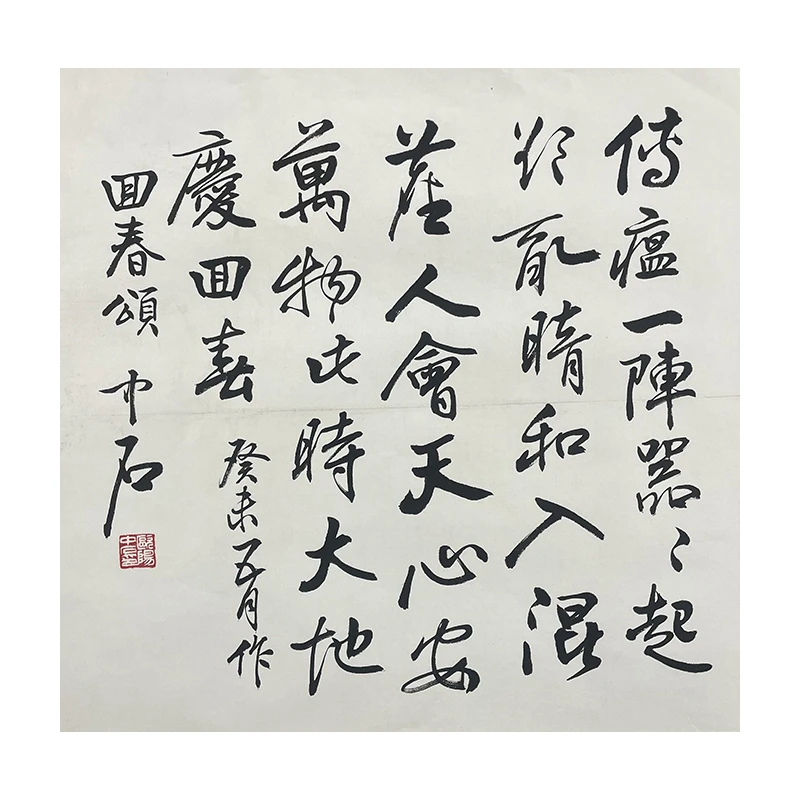 傳瘟一陣器〻起
欲亂晴和入混
人會天心安
萬物此時大地
慶回春
癸未五月作
回春頌 中石